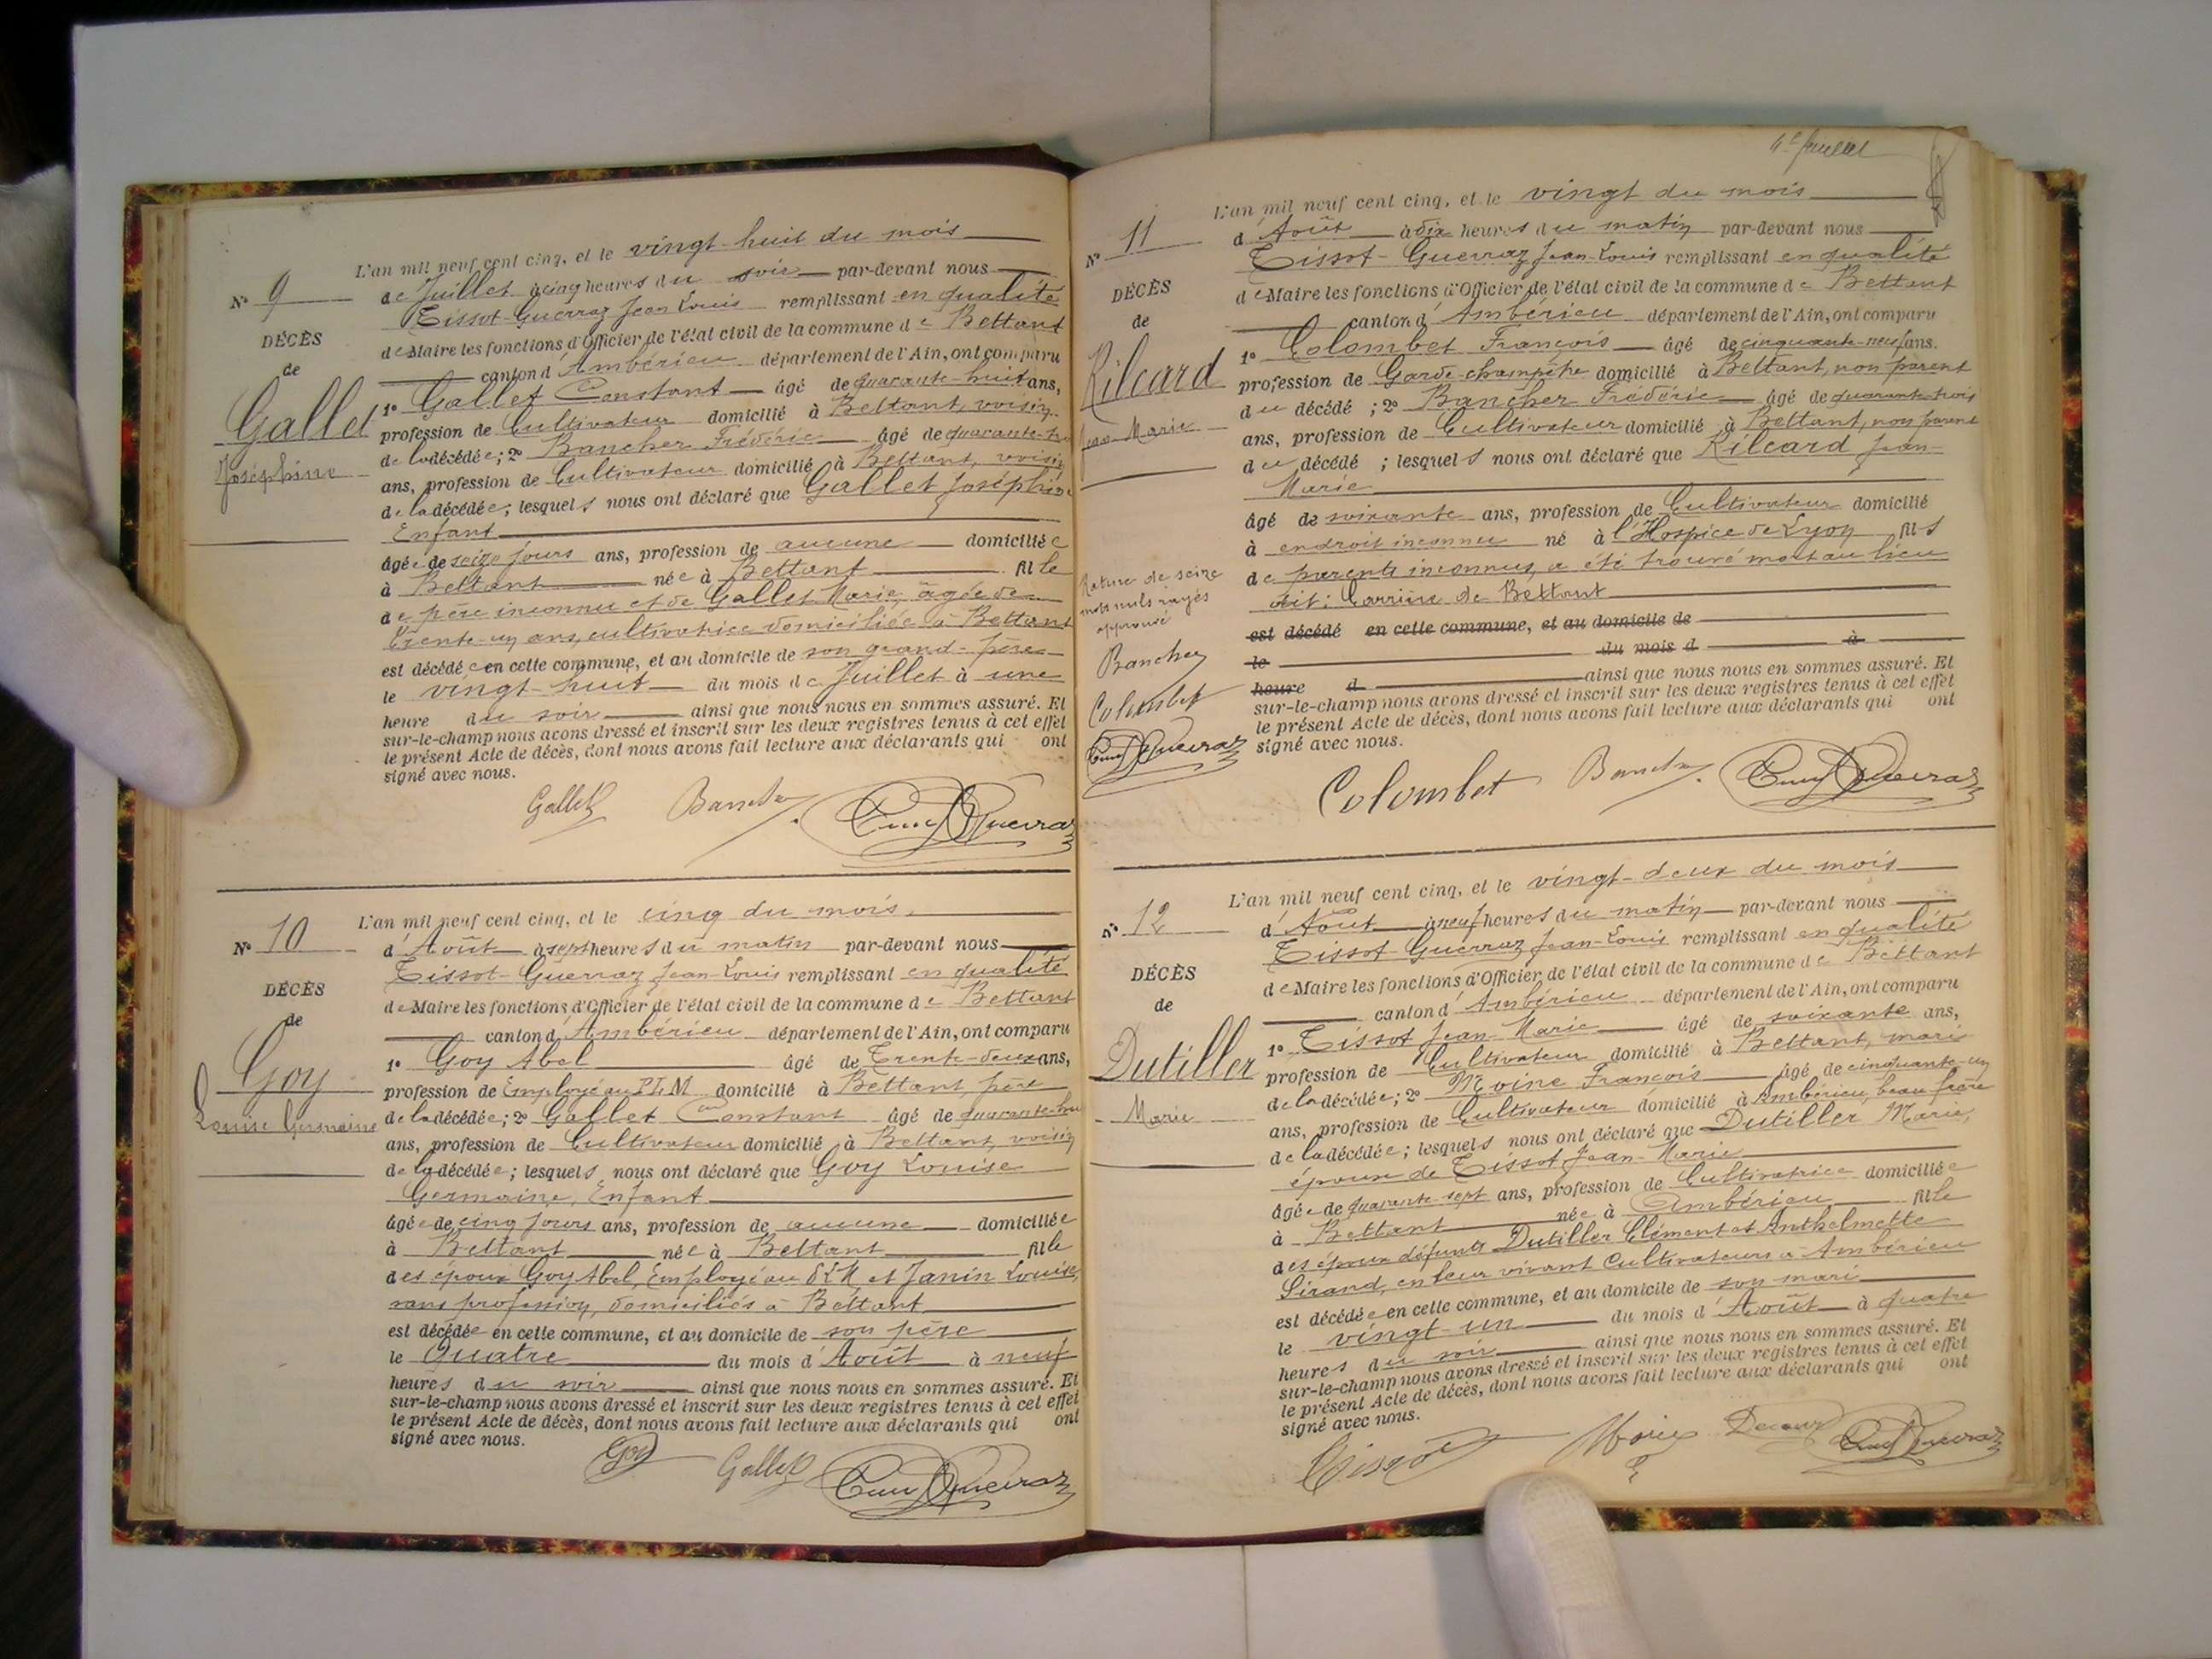 N° 9
DÉCÈS
de
Gallet
Joséphine
L'an mil neuf cent cinq, et le vingt-huit du mois
de Juillet à cinq heures du soir par-devant nous
Tissot-Guerraz Jean-Louis remplissant en qualité
de Maire les fonctions d'Officier de l'état civil de la commune de Bettant
canton d'Ambérieu département de l'Ain, ont comparu
1° Gallet Constant âgé de quarante-huit ans,
profession de Cultivateur domicilié à Bettant, voisin
de la décédée; 2° Bancher Frédéric âgé de quarante-tro
ans, profession de Cultivateur domicilié à Bettant, voisin
de la décédée; lesquels nous ont déclaré que Gallet Joséphine
Enfant
âgée de seize jours ans, profession de aucune domiciliée
à Bettant née à Bettant fille
de père inconnu et de Gallet Marie, âgée de
trente-un ans, cultivatrice domiciliée à Bettant
est décédée en cette commune, et au domicile de son grand-père
le vingt-huit du mois de Juillet à une
heure du soir ainsi que nous nous en sommes assuré. Et
sur-le-champ nous avons dressé et inscrit sur les deux registres tenus à cet effet
le présent Acte de décès, dont nous avons fait lecture aux déclarants qui ont
signé avec nous.
Gallet Bancher
N° 10
DÉCÈS
de
Goy
Louise Germaine
L'an mil neuf cent cinq, et le cinq du mois
d'Août à sept heures du matin par-devant nous
Tissot-Guerraz Jean-Louis remplissant en qualité
de Maire les fonctions d'Officier de l'état civil de la commune de Bettant
canton d'Ambérieu département de l'Ain, ont comparu
1° Goy Abel âgé de Trente-deux ans,
profession de Employé au P.L.M domicilié à Bettant, père
de la décédée; 2° Gallet Constant âgé de quarante-hui
ans, profession de Cultivateur domicilié à Bettant, voisin
de la décédée; lesquels nous ont déclaré que Goy Louise
Germaine, Enfant
âgée de cinq jours ans, profession de aucune domiciliée
à Bettant née à Bettant fille
des époux Goy Abel, Employé au P.L.M et Janin Louise,
sans profession, domiciliés à Bettant
est décédée en cette commune, et au domicile de son père
le Quatre du mois d'Août à neuf
heures du soir ainsi que nous nous en sommes assuré. Et
sur-le-champ nous avons dressé et inscrit sur les deux registres tenus à cet effet
le présent Acte de décès, dont nous avons fait lecture aux déclarants qui ont
signé avec nous.
Goy Gallet
4e feuillet
N° 11
DÉCÈS
de
Rilcard
Jean-Marie
Rature de seize
mots nuls rayés
approuvé
Bancher
Colombet
L'an mil neuf cent cinq, et le vingt du mois
d'Août à dix heures du matin par-devant nous
Tissot-Guerraz Jean-Louis remplissant en qualité
de Maire les fonctions d'Officier de l'état civil de la commune de Bettant
canton d'Ambérieu département de l'Ain, ont comparu
1° Colombet François âgé de cinquante-neuf ans.
profession de Garde champêtre domicilié à Bettant, non parent
du décédé; 2° Bancher Frédéric âgé de quarante-trois
ans, profession de Cultivateur domicilié à Bettant, non parent
du décédé; lesquels nous ont déclaré que Rilcard Jean-
Marie
âgé de soixante ans, profession de Cultivateur domicilié
à endroit inconnu né à l'Hospice de Lyon fils
de parents inconnus, a été trouvé mort au lieu
dit: Carrière de Bettant
est décédé en cette commune, et au domicile de
le du mois d à
heure d ainsi que nous nous en sommes assuré. Et
sur-le-champ nous avons dressé et inscrit sur les deux registres tenus à cet effet
le présent Acte de décès, dont nous avons fait lecture aux déclarants qui ont
signé avec nous.
Colombet Bancher
N° 12
DÉCÈS
de
Dutiller
Marie
L'an mil neuf cent cinq, et le vingt-deux du mois
d'Août à neuf heures du matin par-devant nous
Tissot-Guerraz Jean-Louis remplissant en qualité
de Maire les fonctions d'Officier de l'état civil de la commune de Bettant
canton d'Ambérieu département de l'Ain, ont comparu
1° Tissot Jean-Marie âgé de soixante ans,
profession de Cultivateur domicilié à Bettant, mari
de la décédée; 2° Moine François âgé de cinquante-un
ans, profession de Cultivateur domicilié à Ambérieu, beau frère
de la décédée; lesquels nous ont déclaré que Dutiller Marie,
épouse de Tissot Jean-Marie
âgée de quarante-sept ans, profession de Cultivatrice domiciliée
à Bettant née à Ambérieu fille
des époux défunts Dutiller Clément et Anthelmette
Sirand, en leur vivant Cultivateurs à Ambérieu
est décédée en cette commune, et au domicile de son mari
le vingt-un du mois d'Août à quatre
heures du soir ainsi que nous nous en sommes assuré. Et
sur-le-champ nous avons dressé et inscrit sur les deux registres tenus à cet effet
le présent Acte de décès, dont nous avons fait lecture aux déclarants qui ont
signé avec nous.
Tissot Moine